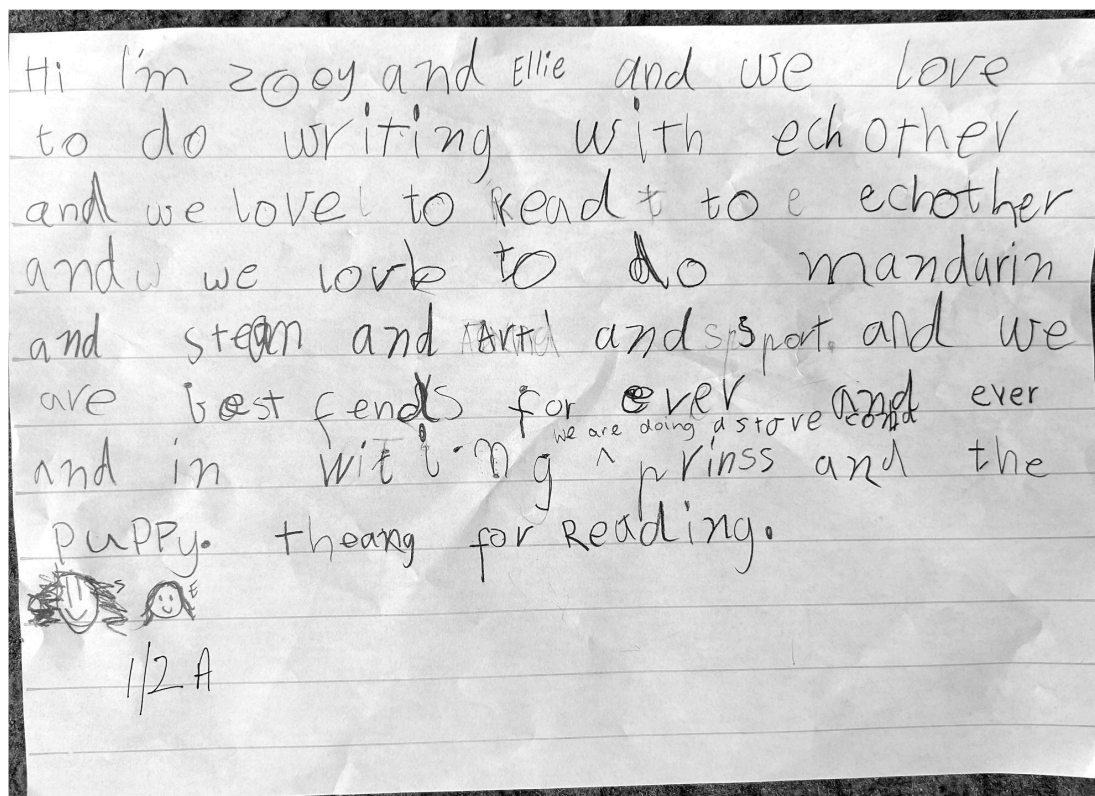 Hi I'm zooy and Ellie and we love
to do writing with echother
and we love to Read to echother
and we love to do mandarin
and steam and Art and sport. and we
are best fends for ever and ever
we are doing a stove cond
and in witing ^ prinss and the
puppy. theang for Reading.
S E
1/2 A